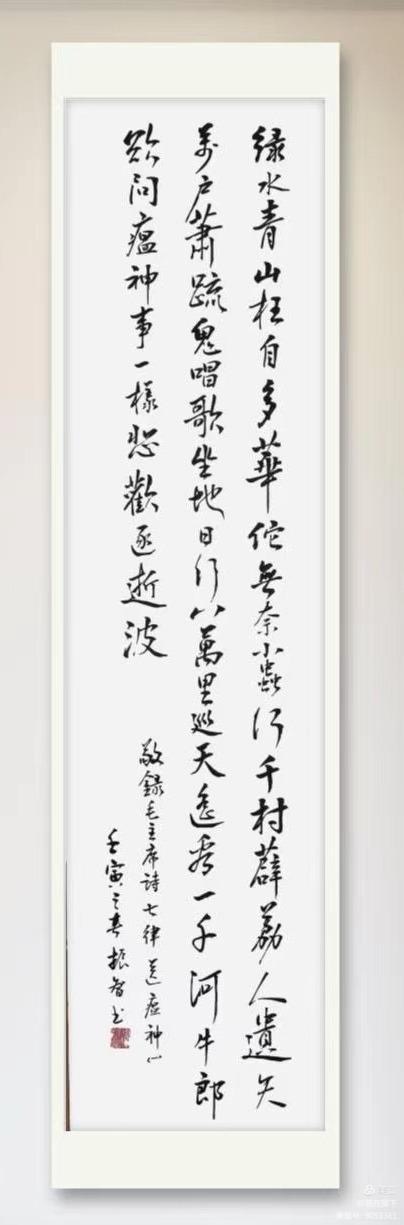 绿水青山枉自多華佗無奈小蟲何千村薜荔人遺矢
萬户蕭疏鬼唱歌坐地日行八萬里巡天遥看一千河牛郎
欲問瘟神事一樣悲歡逐逝波
敬録毛主席詩七律送瘟神
壬寅之春振智书